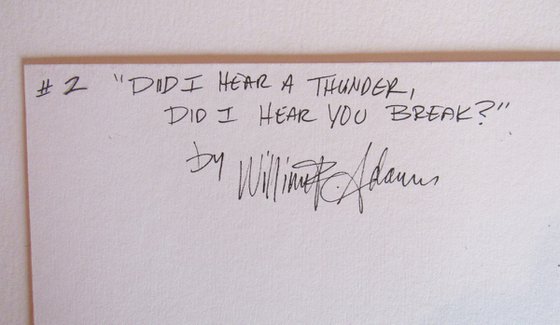 #2 "DID I HEAR A THUNDER,
DID I HEAR YOU BREAK?"
by William R. Adams